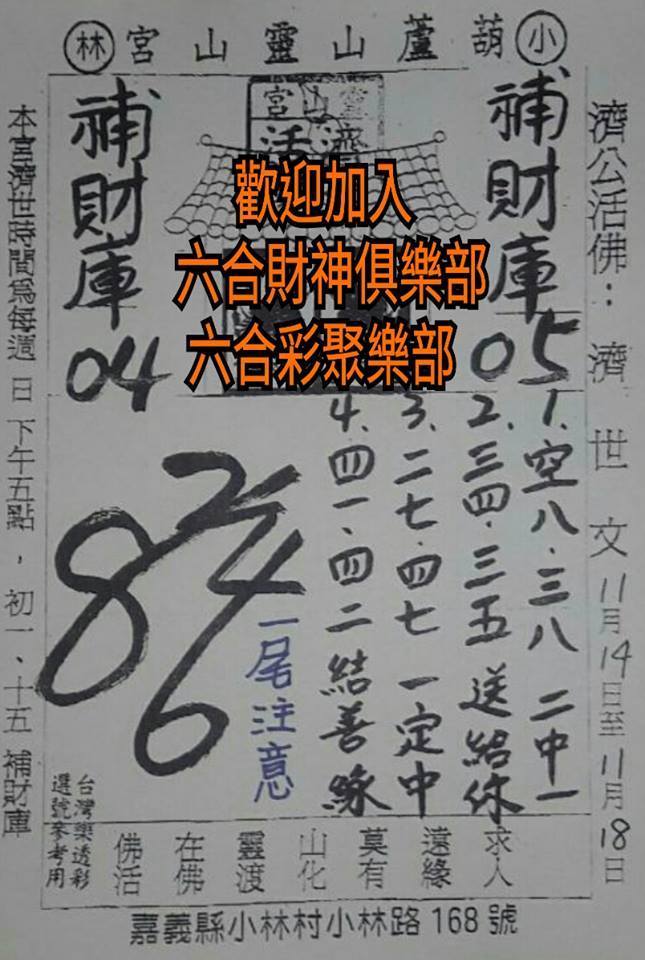 林 宮山靈山蘆葫 小
濟公活佛：濟世文11月14日至11月18日
補財庫
05
補財庫
04
歡迎加入
六合財神俱樂部
六合彩聚樂部
1、空八、三八 二中一
2、三四、三五 送給你
3、二七、四七 一定中
4、四一、四二結善緣
2
8 4
6
一尾注意
本宮濟世時間為每週日下午五點，初一、十五 補財庫
台灣樂透彩
選號參考用
求人
遠緣
莫有
山化
靈渡
在佛
佛活
嘉義縣小林村小林路168號